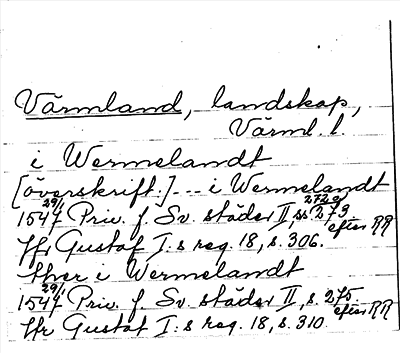 Värmland, landskap,
Värml. l.
i Wermelandt
[överskrift:] --- i Wermelandt
29/1 1547 Priv. f. Sv. städer II, ss. 272 o 273 efter RR
Jfr Gustaf I:s reg. 18, s. 306.
ther i Wermelandt
29/1 1547 Priv. f. Sv. städer II, s. 275. efter RR
Jfr Gustaf I:s reg. 18, s. 310.